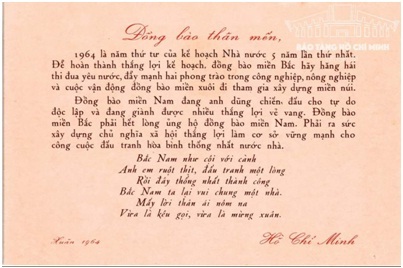 BẢO TÀNG HỒ CHÍ MINH
Đồng bào thân mến,
1964 là năm thứ tư của kế hoạch Nhà nước 5 năm lần thứ nhất.
Để hoàn thành thắng lợi kế hoạch, đồng bào miền Bắc hãy hăng hái
thi đua yêu nước, đẩy mạnh hai phong trào trong công nghiệp, nông nghiệp
và cuộc vận động đồng bào miền xuôi đi tham gia xây dựng miền núi.
Đồng bào miền Nam đang anh dũng chiến đấu cho tự do
độc lập và đang giành được nhiều thắng lợi vẻ vang. Đồng bào
miền Bắc phải hết lòng ủng hộ đồng bào miền Nam. Phải ra sức
xây dựng chủ nghĩa xã hội thắng lợi làm cơ sở vững mạnh cho
công cuộc đấu tranh hòa bình thống nhất nước nhà.
Bắc Nam như cội với cành
Anh em ruột thịt, đấu tranh một lòng
Rồi đây thống nhất thành công
Bắc Nam ta lại vui chung một nhà.
Mấy lời thân ái nôm na
Vừa là kêu gọi, vừa là mừng xuân.
Xuân 1964
Hồ Chí Minh